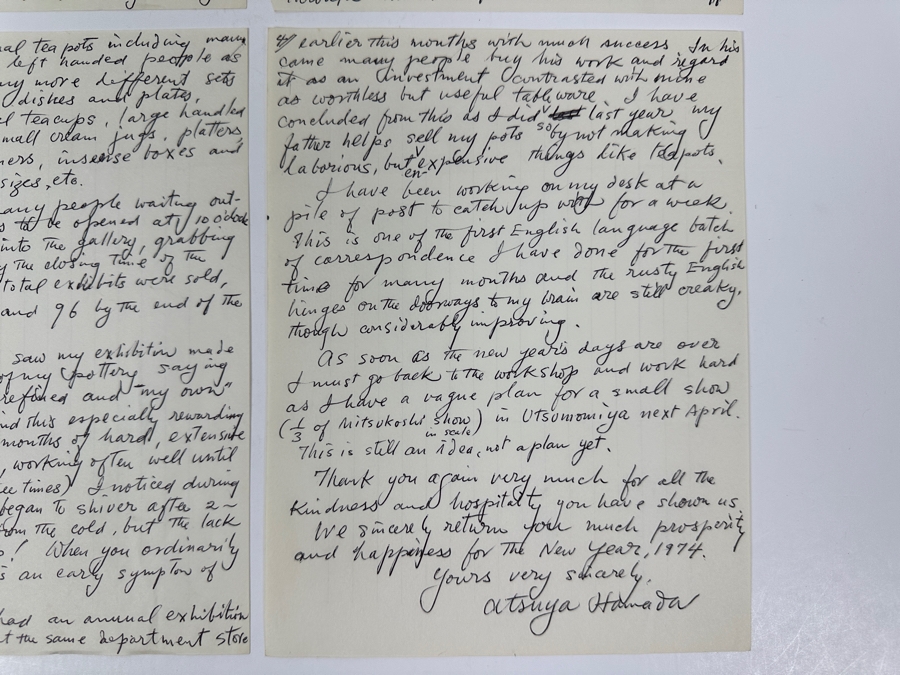 nal tea pots including many
left handed people as
ny more different sets
dishes and plates,
el teacups, large handled
mall cream jugs, platters,
ners, insense boxes and
sizes, etc.
any people waiting out-
s to be opened at 10 o'clock
into the gallery, grabbing
y the closing time of the
total exhibits were sold,
and 96 by the end of the
saw my exhibition made
of my pottery saying
refined and "my own"
nd this especially rewarding
months of hard, extensive
, working often well until
ee times) I noticed during
began to shiver after 2~
from the cold, but the lack
! When you ordinarily
s an early symptom of
had an annual exhibition
at the same department store
4/ earlier this months with much success In his
came many people buy his work and regard
it as an investment contrasted with mine
as worthless but useful tableware. I have
concluded from this as I did last year, my
father helps sell my pots so by not making
laborious, but enexpensive things like teapots.
I have been working on my desk at a
pile of post to catch up with for a week.
This is one of the first English language batch
of correspondence I have done for the first
time for many months and the rusty English
hinges on the doorways to my brain are still creaky,
though considerably improving.
As soon as the new year's days are over
I must go back to the workshop and work hard
as I have a vague plan for a small show
(1/3 of Mitsukoshi show in scale) in Utsunomiya next April.
This is still an idea, not a plan yet.
Thank you again very much for all the
kindness and hospitality you have shown us.
We sincerely return you much prosperity
and happiness for the New Year, 1974.
Yours very sincerely,
Atsuya Hamada